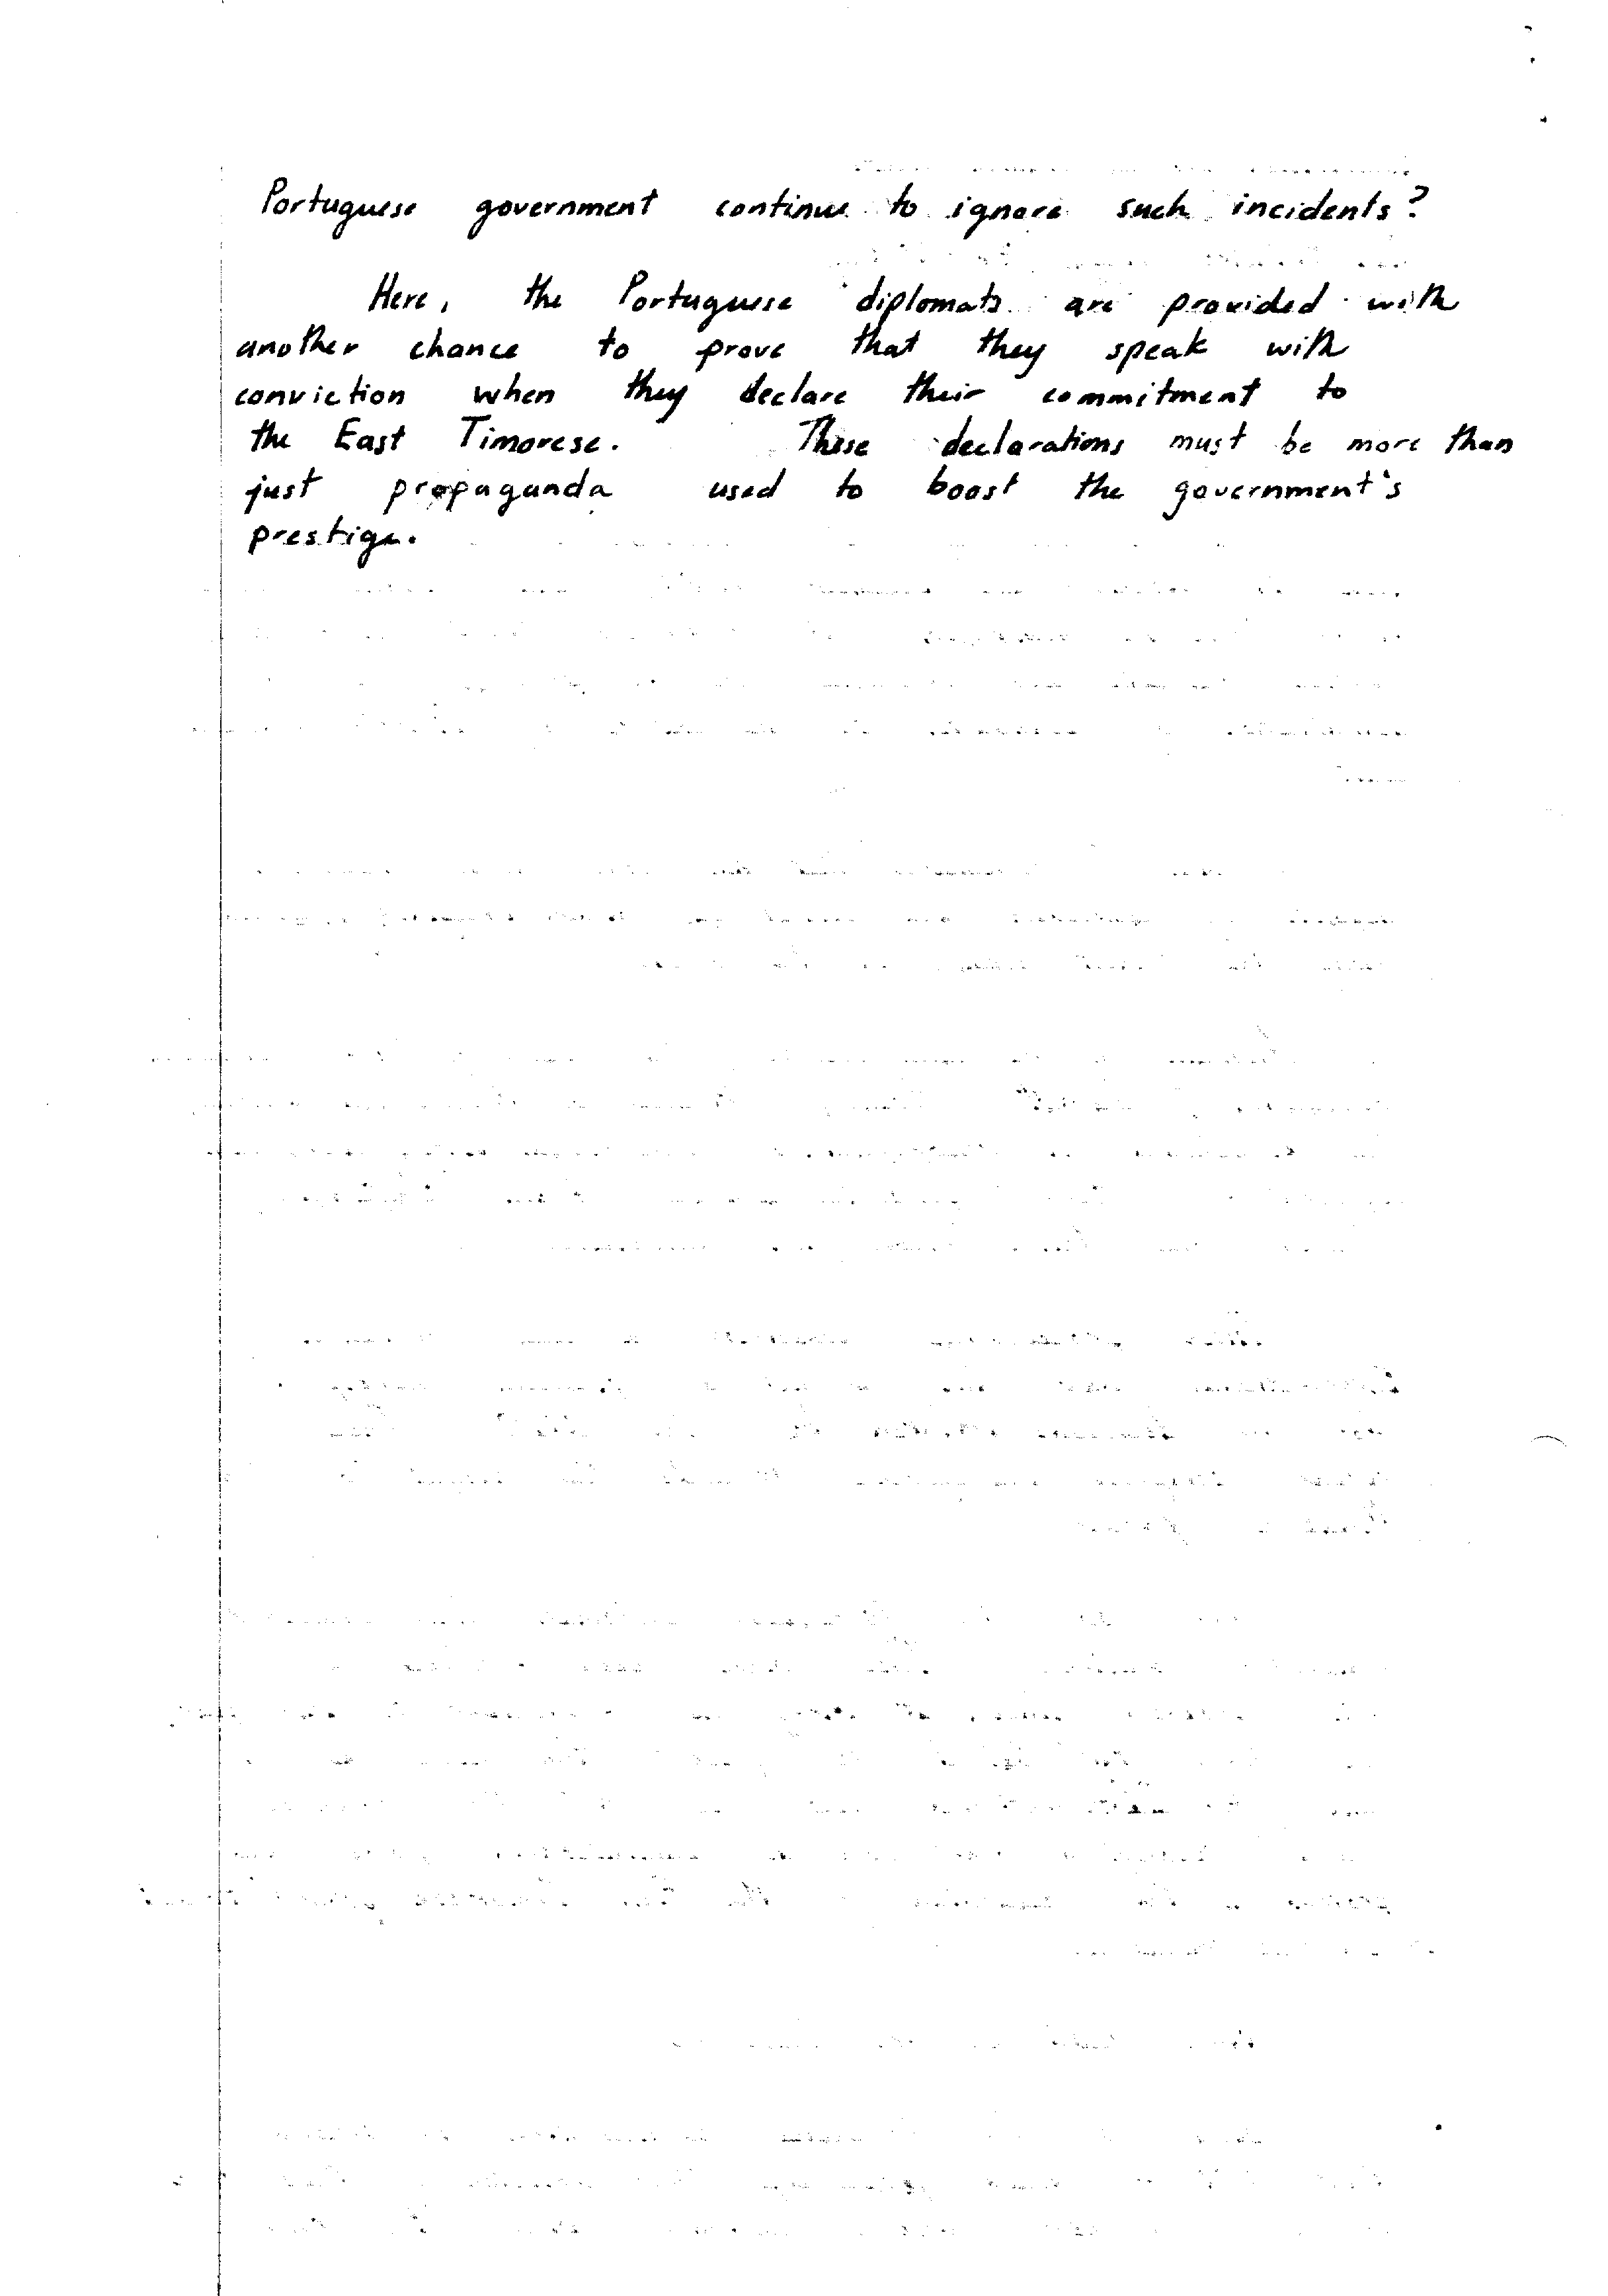 Portuguese government continue to ignore such incidents?
Here, the Portuguese diplomats are provided with
another chance to prove that they speak with
conviction when they declare their commitment to
the East Timorese. These declarations must be more than
just propaganda used to boost the government's
prestige.